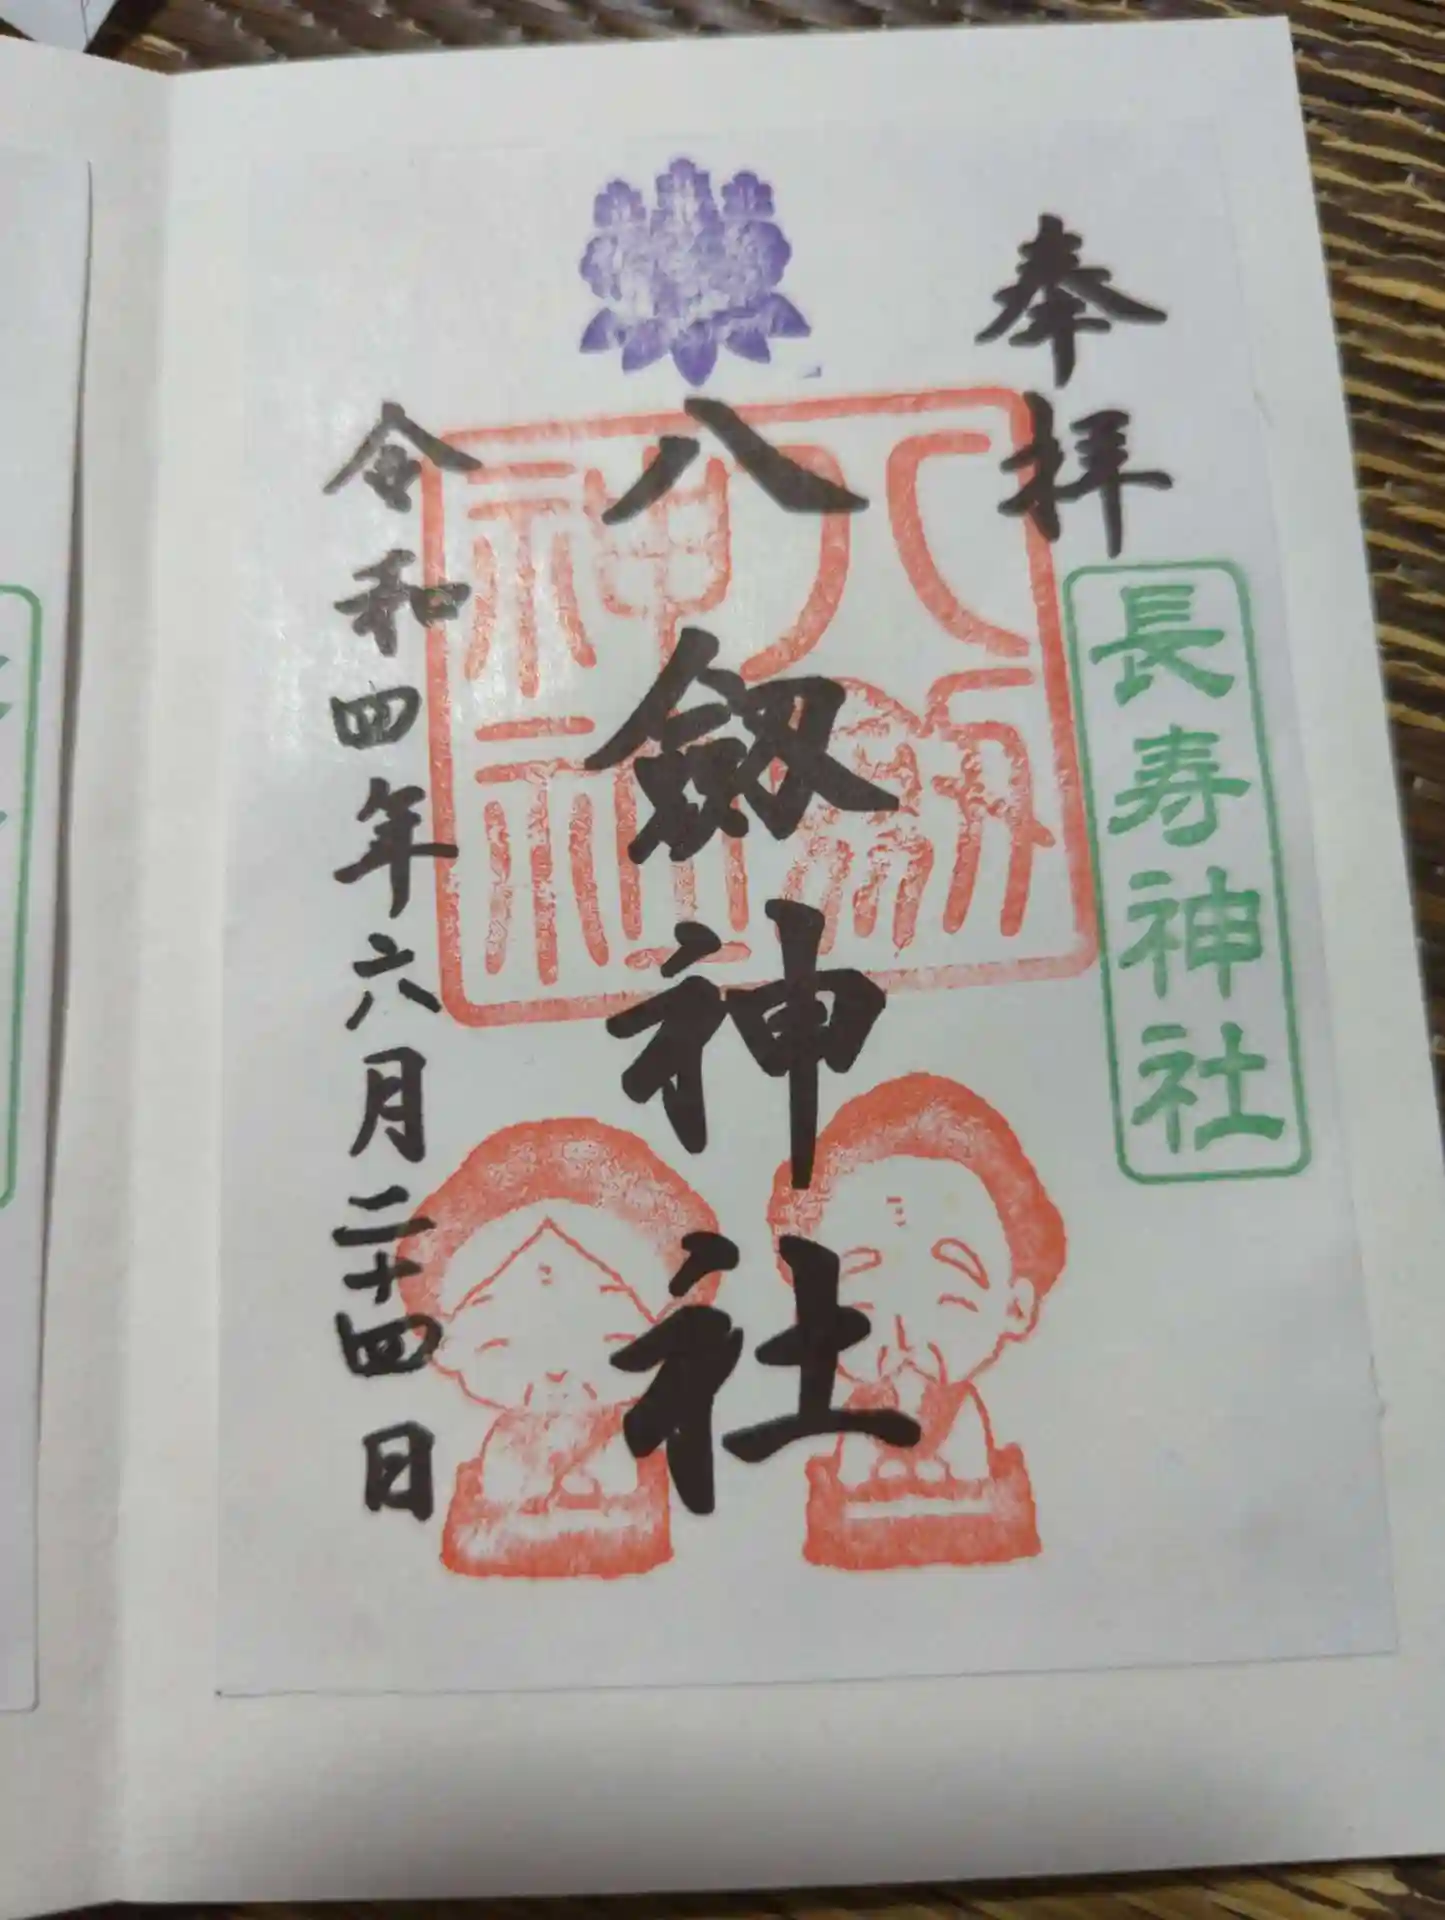 奉拝
長寿神社
八劔神社
八劔神社
令和四年六月二十四日